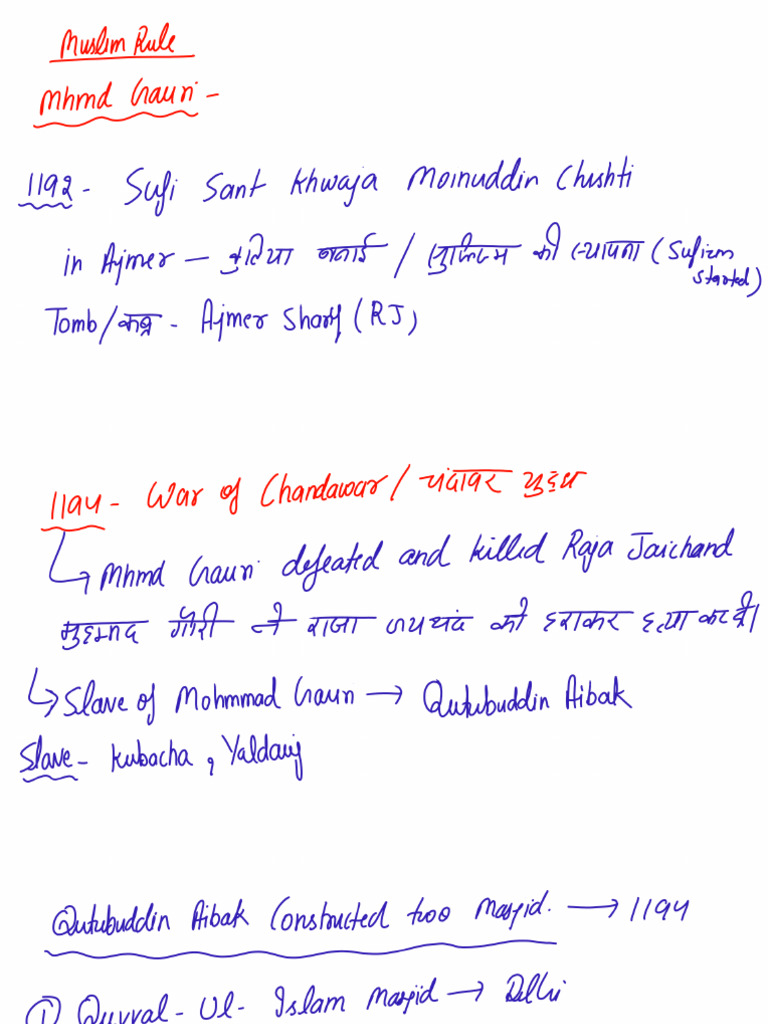 Muslim Rule
Mhmd Gauri -
1192 - Sufi Sant Khwaja Moinuddin Chishti
in Ajmer - कुटिया बनाई / सुफिज्म की स्थापना (Sufizm started)
Tomb/कब्र - Ajmer Sharif (RJ)
1194 - War of Chandawar / चंदावर युद्ध
↳ Mhmd Gauri defeated and killed Raja Jaichand
मुहम्मद गौरी ने राजा जयचंद को हराकर हत्या कर दी।
↳ Slave of Mohmmad Gauri → Qutubuddin Aibak
Slave - Kubacha, Yaldauz
Qutubuddin Aibak Constructed two Maszid. → 1194
① Quvval - Ul - Islam Maszid → Delhi